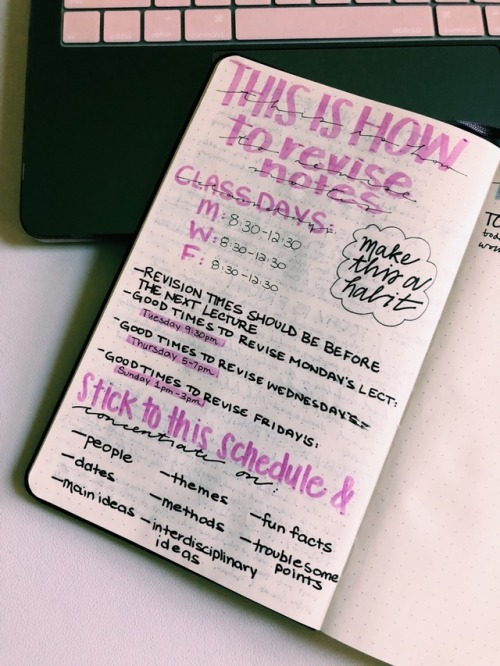 THIS IS HOW
to revise
notes
CLASS DAYS:
M: 8:30-12:30
W: 8:30-12:30
F: 8:30-12:30
make
this a
habit
-REVISION TIMES SHOULD BE BEFORE
THE NEXT LECTURE
-GOOD TIMES TO REVISE MONDAY'S LECT:
Tuesday 9:30pm
-GOOD TIMES TO REVISE WEDNESDAY'S:
Thursday 5-7pm
-GOOD TIMES TO REVISE FRIDAY'S:
Sunday 1pm-3pm
Stick to this schedule &
concentrate on:
-people
-dates
-main ideas
-themes
-methods
-interdisciplinary
ideas
-fun facts
-troublesome
points